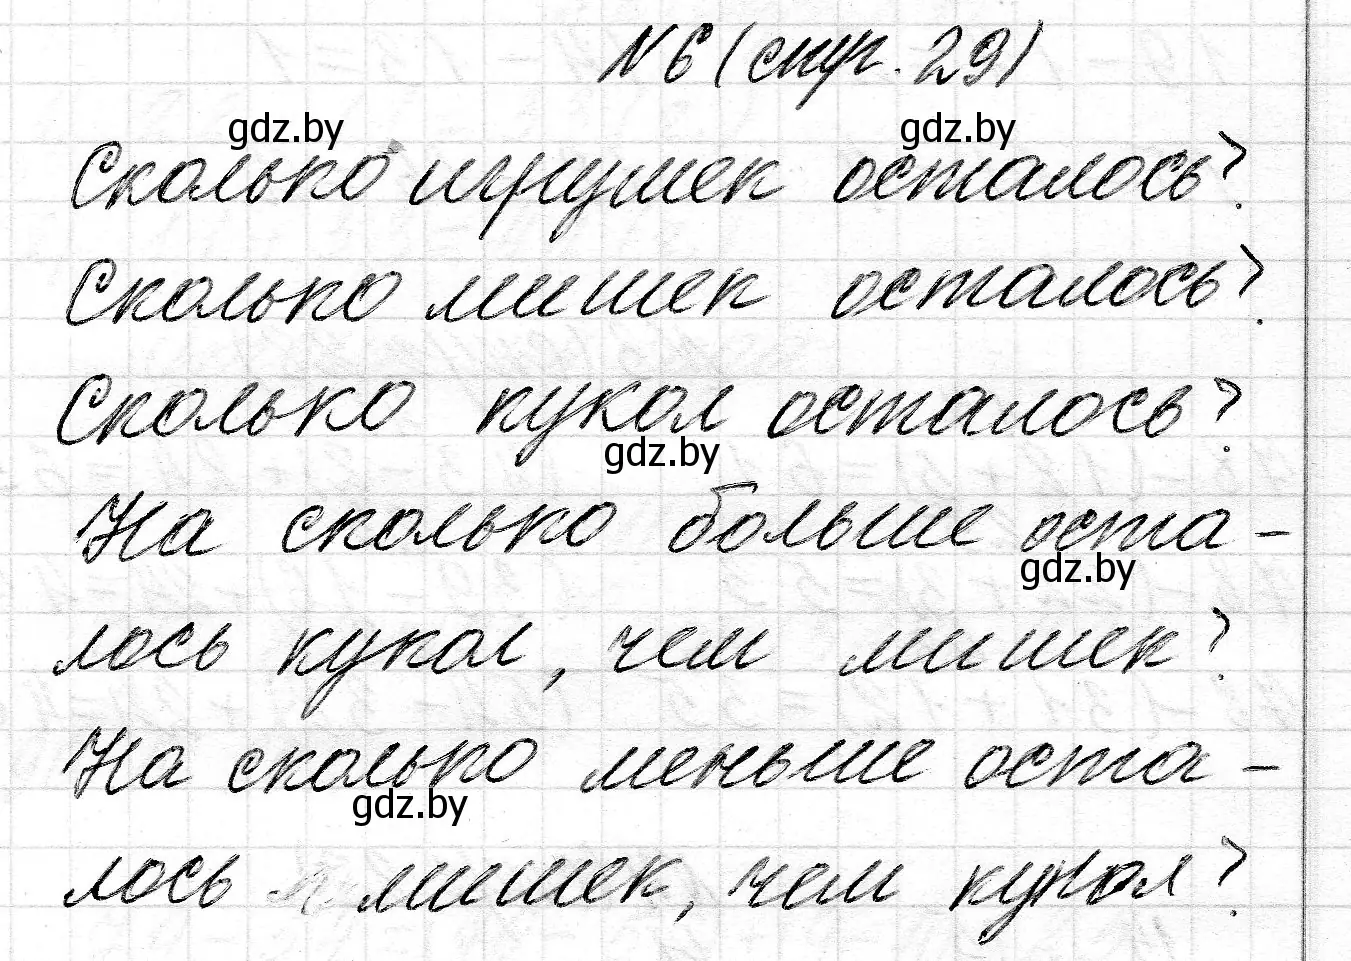 №6 (стр. 29)
gdz.by gdz.by
Сколько игрушек осталось?
Сколько мишек осталось?
Сколько кукол осталось?
gdz.by
На сколько больше оста-
gdz.by
лось кукол, чем мишек?
На сколько меньше оста-
gdz.by
лось мишек, чем кукол?